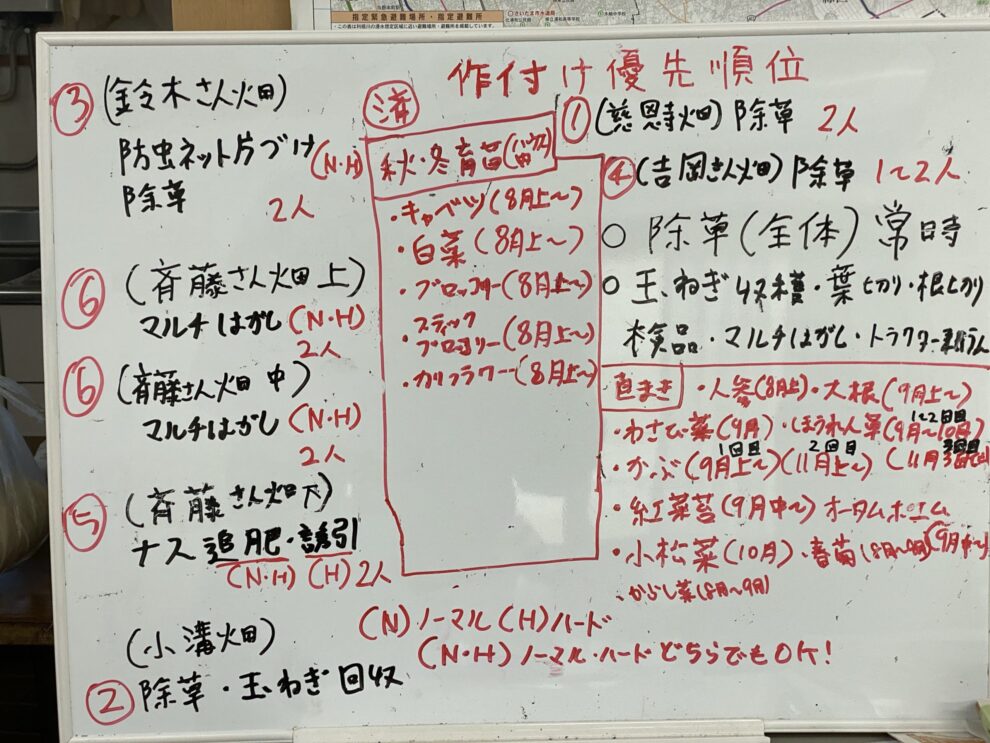 指定緊急避難場所・指定避難所
作付け優先順位
③(鈴木さん畑)
防虫ネット片づけ(N・H)
除草
2人
⑥(斉藤さん畑上)
マルチはがし(N・H)
2人
⑥(斉藤さん畑中)
マルチはがし(N・H)
2人
⑤(斉藤さん畑下)
ナス追肥・誘引
(N・H)(H)2人
(小溝畑)
②除草・玉ねぎ回収
済
秋・冬育苗
・キャベツ(8月上〜)
・白菜(8月上〜)
・ブロッコリー(8月上〜)
・スティック
ブロッコリー(8月上〜)
・カリフラワー(8月上〜)
①(慈恩寺畑)除草 2人
④(吉岡さん畑)除草 1〜2人
○除草(全体)常時
○玉ねぎ収穫・葉切り・根切り
検品・マルチはがし・トラクター耕うん
直まき ・人参(8月上)・大根(9月上〜)
・わさび菜(9月)・ほうれん草(9月〜10月)
1〜2回目
1回目 2回目 3回目
・かぶ(9月上〜)(11月上〜)
・紅菜苔(9月中〜)オータムポエム
・小松菜(10月)・春菊(8月〜9月)(9月中〜)
・からし菜(8月〜9月)
(N)ノーマル(H)ハード
(N・H)ノーマル・ハードどちらでもOK!